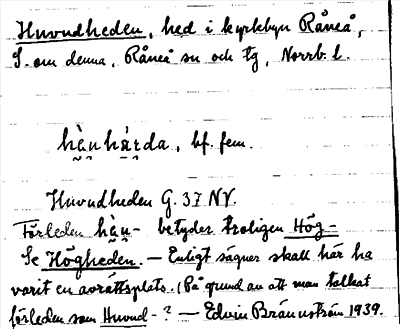 Huvudheden, hed i kyrkbyn Råneå,
S. om denna, Råneå sn och tg, Norrb. l.
hạ̀ṵhá̤rda, bf. fem.
Huvudheden G. 37 NV.
Förleden hạ̀ṵ- betyder troligen Hög-
Se Högheden. — Enligt sägner skall här ha
varit en avrättsplats. (På grund av att man tolkat
förleden som Huvud- ? — Edvin Brännström 1939.